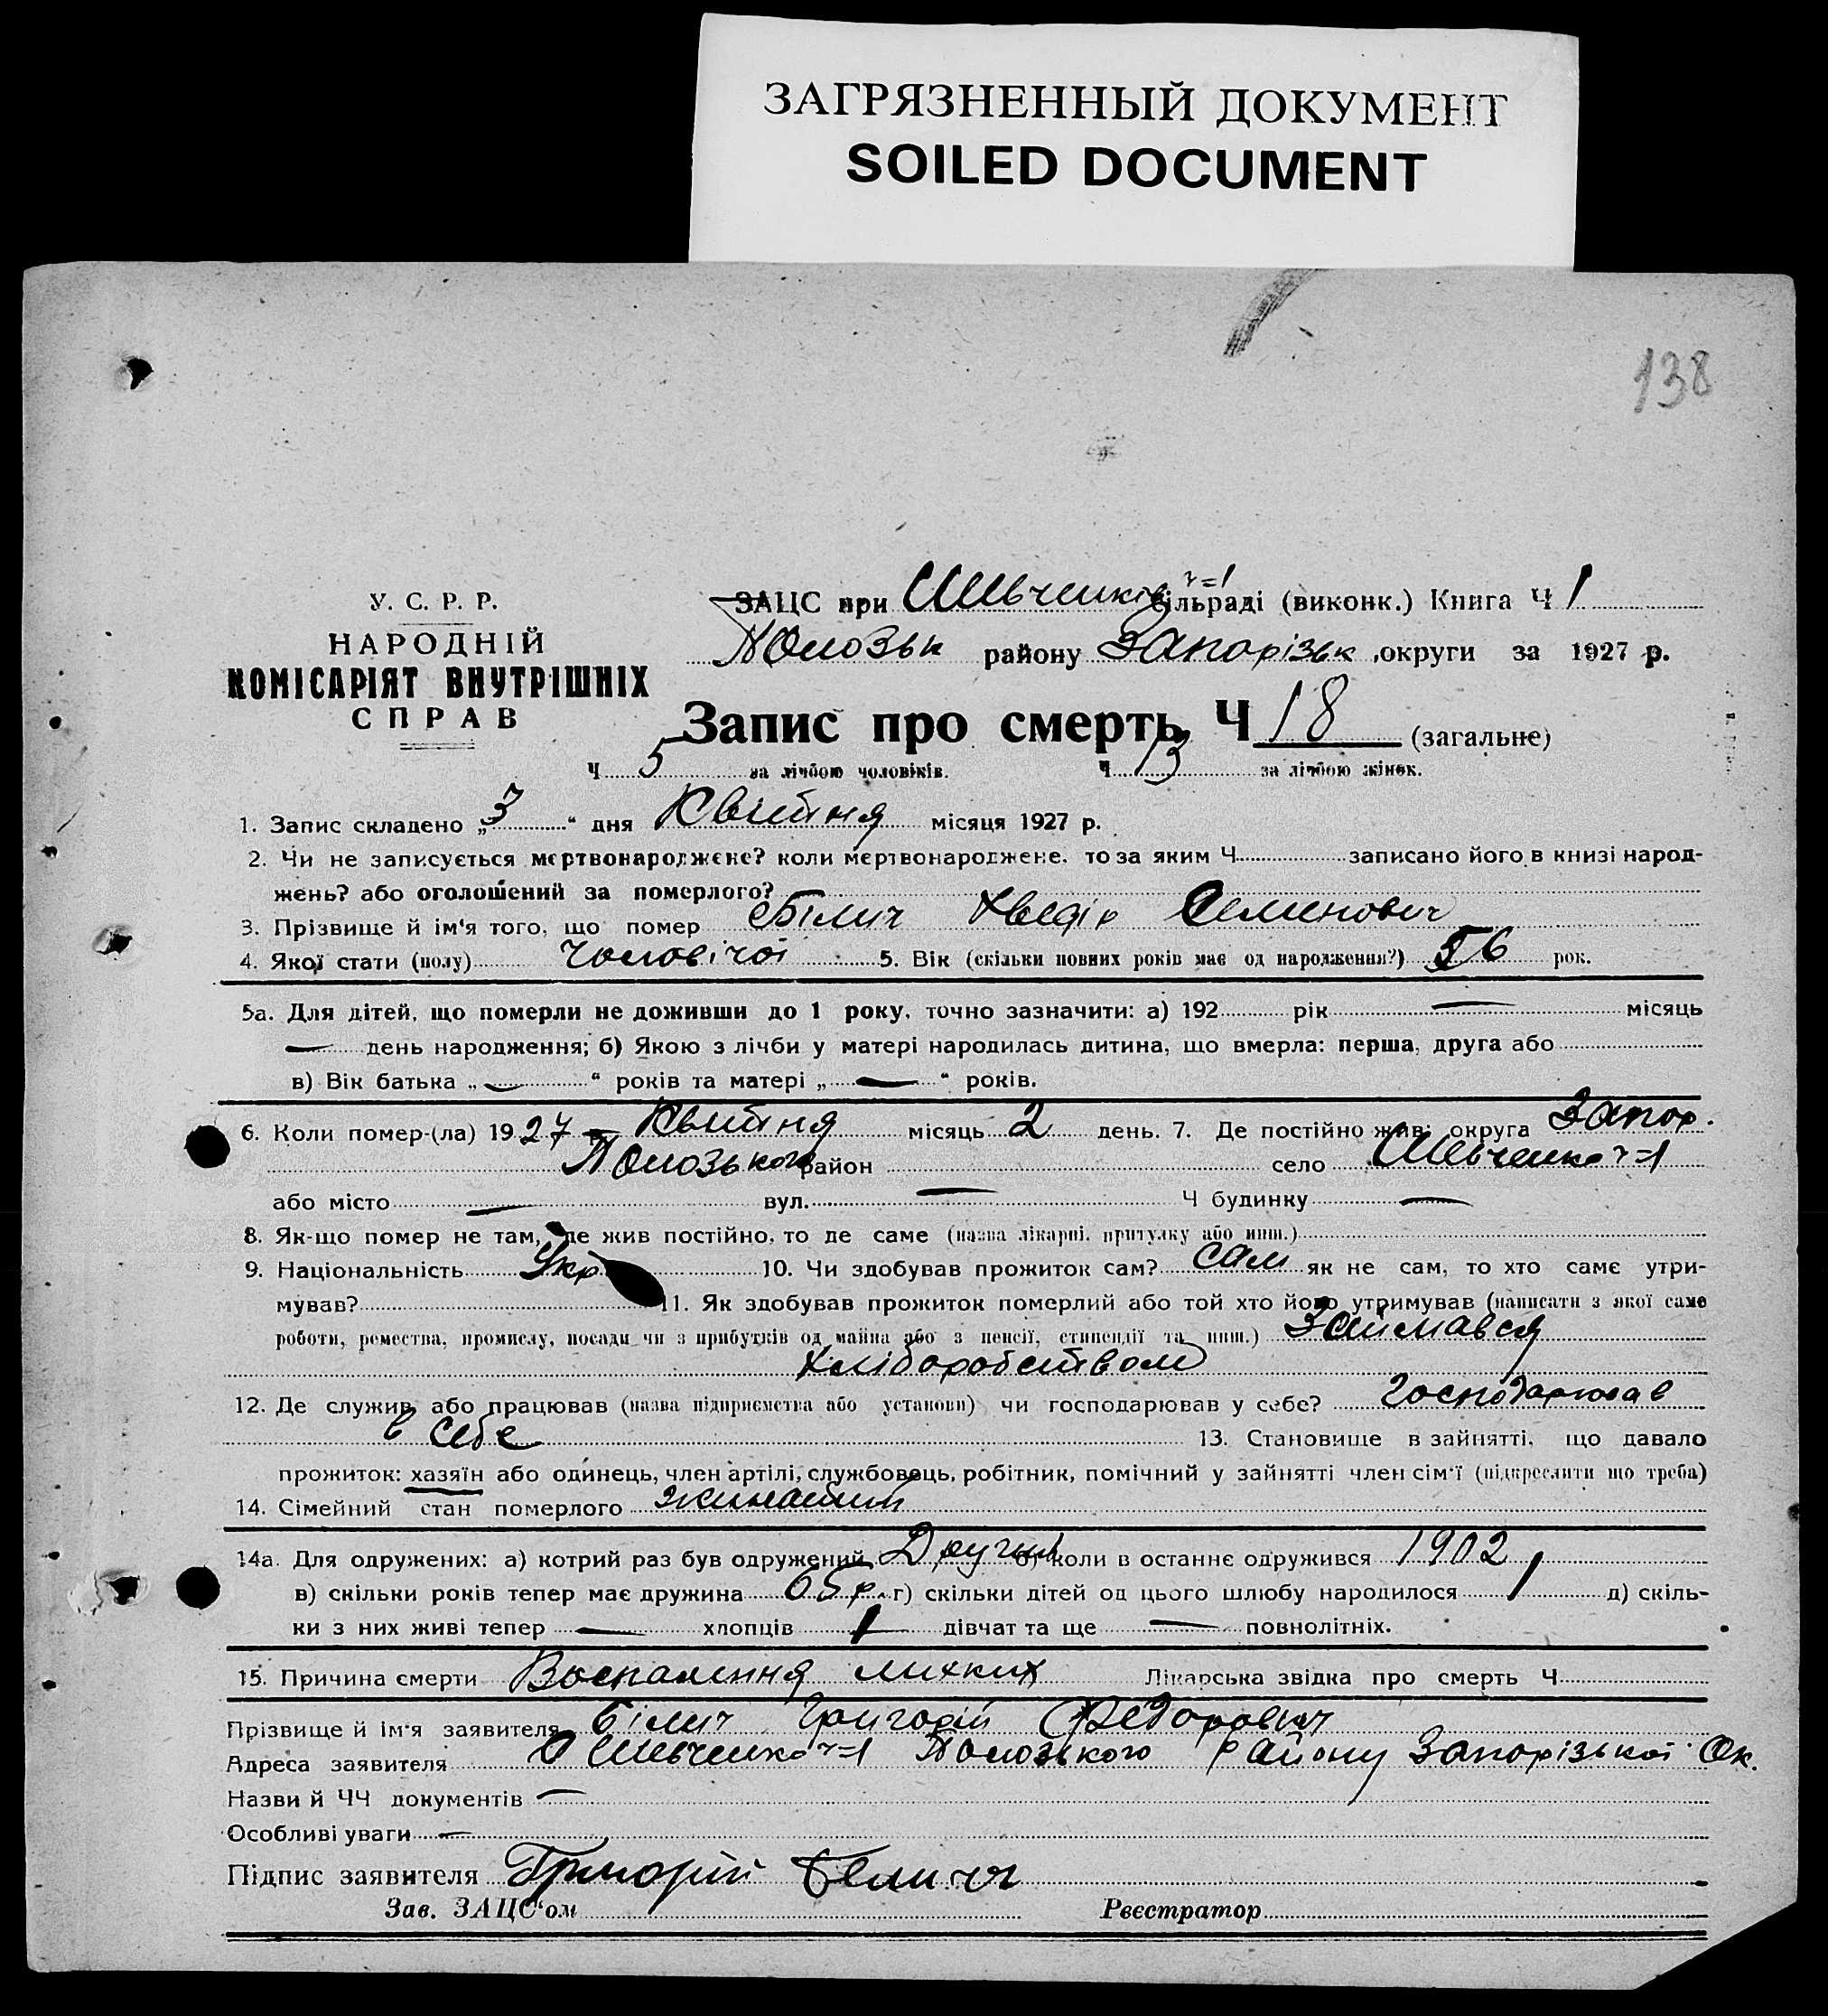 ЗАГРЯЗНЕННЫЙ ДОКУМЕНТ
SOILED DOCUMENT
138
У. С. Р. Р.
НАРОДНІЙ
КОМІСАРІЯТ ВНУТРІШНІХ
СПРАВ
ЗАЦС при Шевченків ч=1 сільраді (виконк.) Книга Ч 1
Полозьк району Запорізьк округи за 1927 р.
Запис про смерть Ч 18 (загальне)
Ч 5 за лічбою чоловіків. Ч 13 за лічбою жінок.
1. Запис складено „3“ дня Квітня місяця 1927 р.
2. Чи не записується мертвонароджене? коли мертвонароджене, то за яким Ч записано його в книзі народ-
жень? або оголошений за померлого?
3. Прізвище й ім'я того, що помер Білич Хведір Семенович
4. Якої стати (полу) Чоловічої 5. Вік (скільки повних років має од народження?) 56 рок.
5а. Для дітей, що померли не доживши до 1 року, точно зазначити: а) 192 рік — місяць
— день народження; б) Якою з лічби у матері народилась дитина, що вмерла: перша, друга або
в) Вік батька „—“ років та матері „—“ років.
6. Коли помер-(ла) 1927 р. Квітня місяць 2 день. 7. Де постійно жив: округа Запор.
Полозького район село Шевченко ч=1
або місто — вул. — Ч будинку —
8. Як-що помер не там, де жив постійно, то де саме (назва лікарні, притулку або инш.)
9. Національність Укр. 10. Чи здобував прожиток сам? сам як не сам, то хто саме утри-
мував? 11. Як здобував прожиток померлий або той хто його утримував (написати з якої саме
роботи, ремества, промислу, посади чи з прибутків од майна або з пенсії, стипендії та инш.) Займався
хліборобством
12. Де служив або працював (назва підприємства або установи) чи господарював у себе? господарював
в себе 13. Становище в зайнятті, що давало
прожиток: хазяїн або одинець, член артілі, службовець, робітник, помічний у зайнятті член сім'ї (підкреслити що треба)
14. Сімейний стан померлого жинатий
14а. Для одружених: а) котрий раз був одружений Другий б) коли в останнє одружився 1902
в) скільки років тепер має дружина 65 р. г) скільки дітей од цього шлюбу народилося 1 д) скіль-
ки з них живі тепер — хлопців 1 дівчат та ще — повнолітніх.
15. Причина смерти Воспалення лихких Лікарська звідка про смерть Ч
Прізвище й ім'я заявителя Білич Григорій Федорович
Адреса заявителя с Шевченко ч=1 Полозького Району Запорізької Ок.
Назви й ЧЧ документів —
Особливі уваги —
Підпис заявителя Григорій Белич
Зав. ЗАЦС'ом Реєстратор